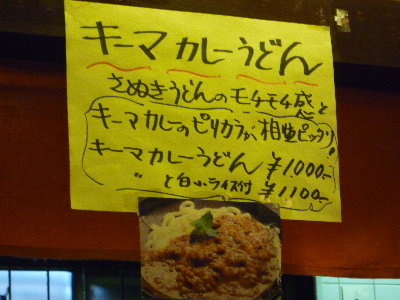 キーマカレーうどん
さぬきうどんのモチモチ感と
キーマカレーのピリカラが相性ピッタリ!
キーマカレーうどん ¥1,000-
〃 と白小ライス付 ¥1100-